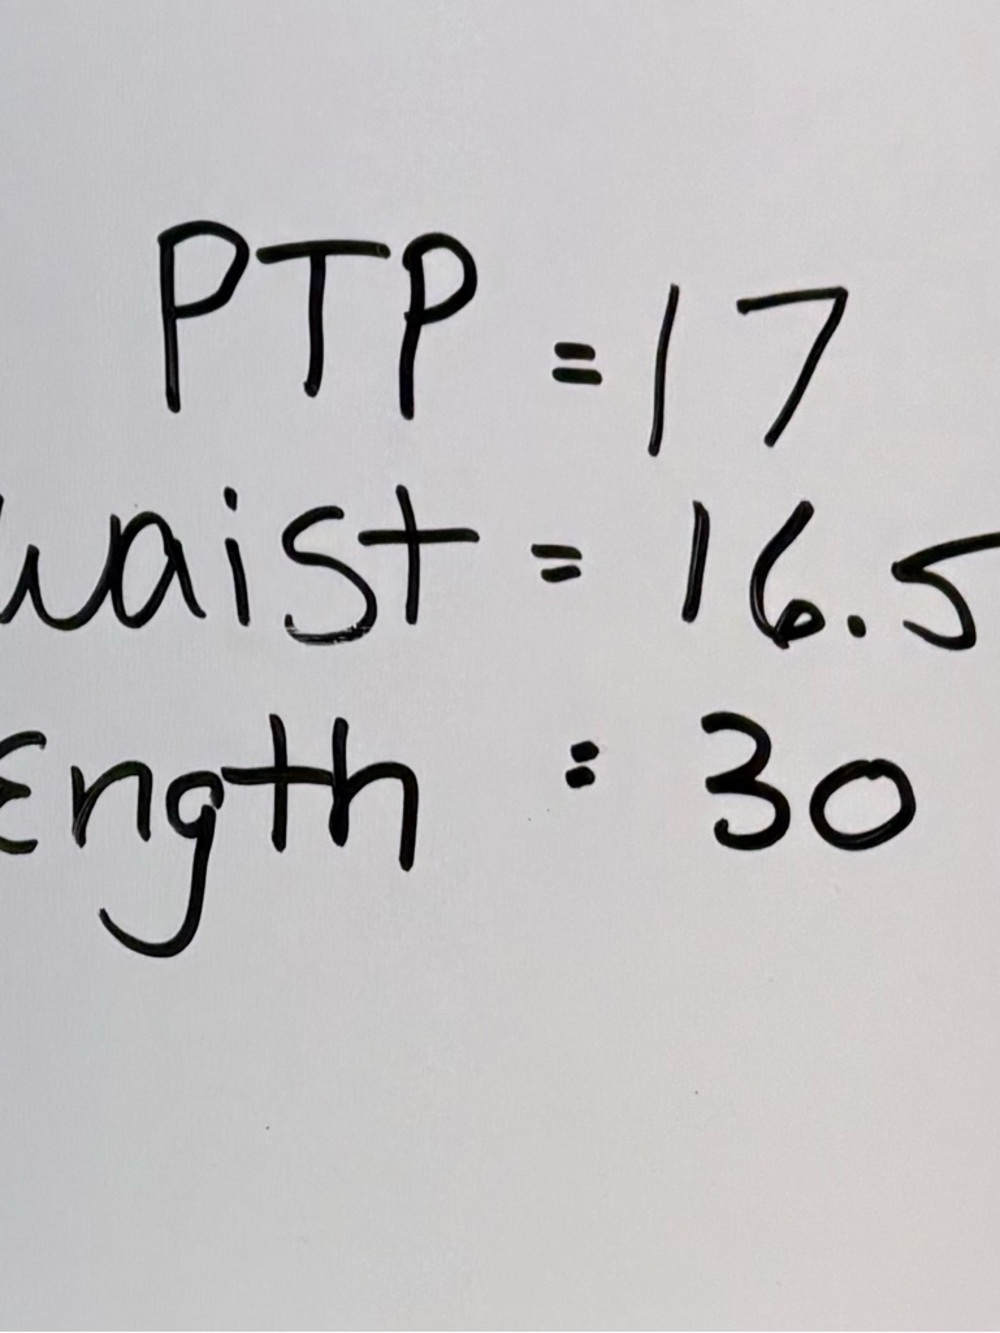 PTP = 17
waist = 16.5
Ength = 30